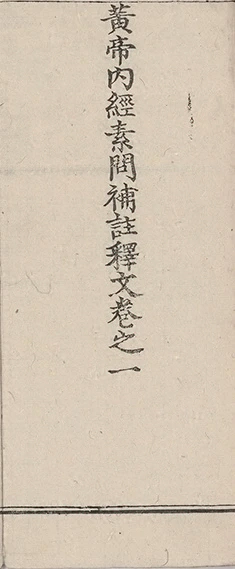 黃帝內經素問補註釋文卷之一